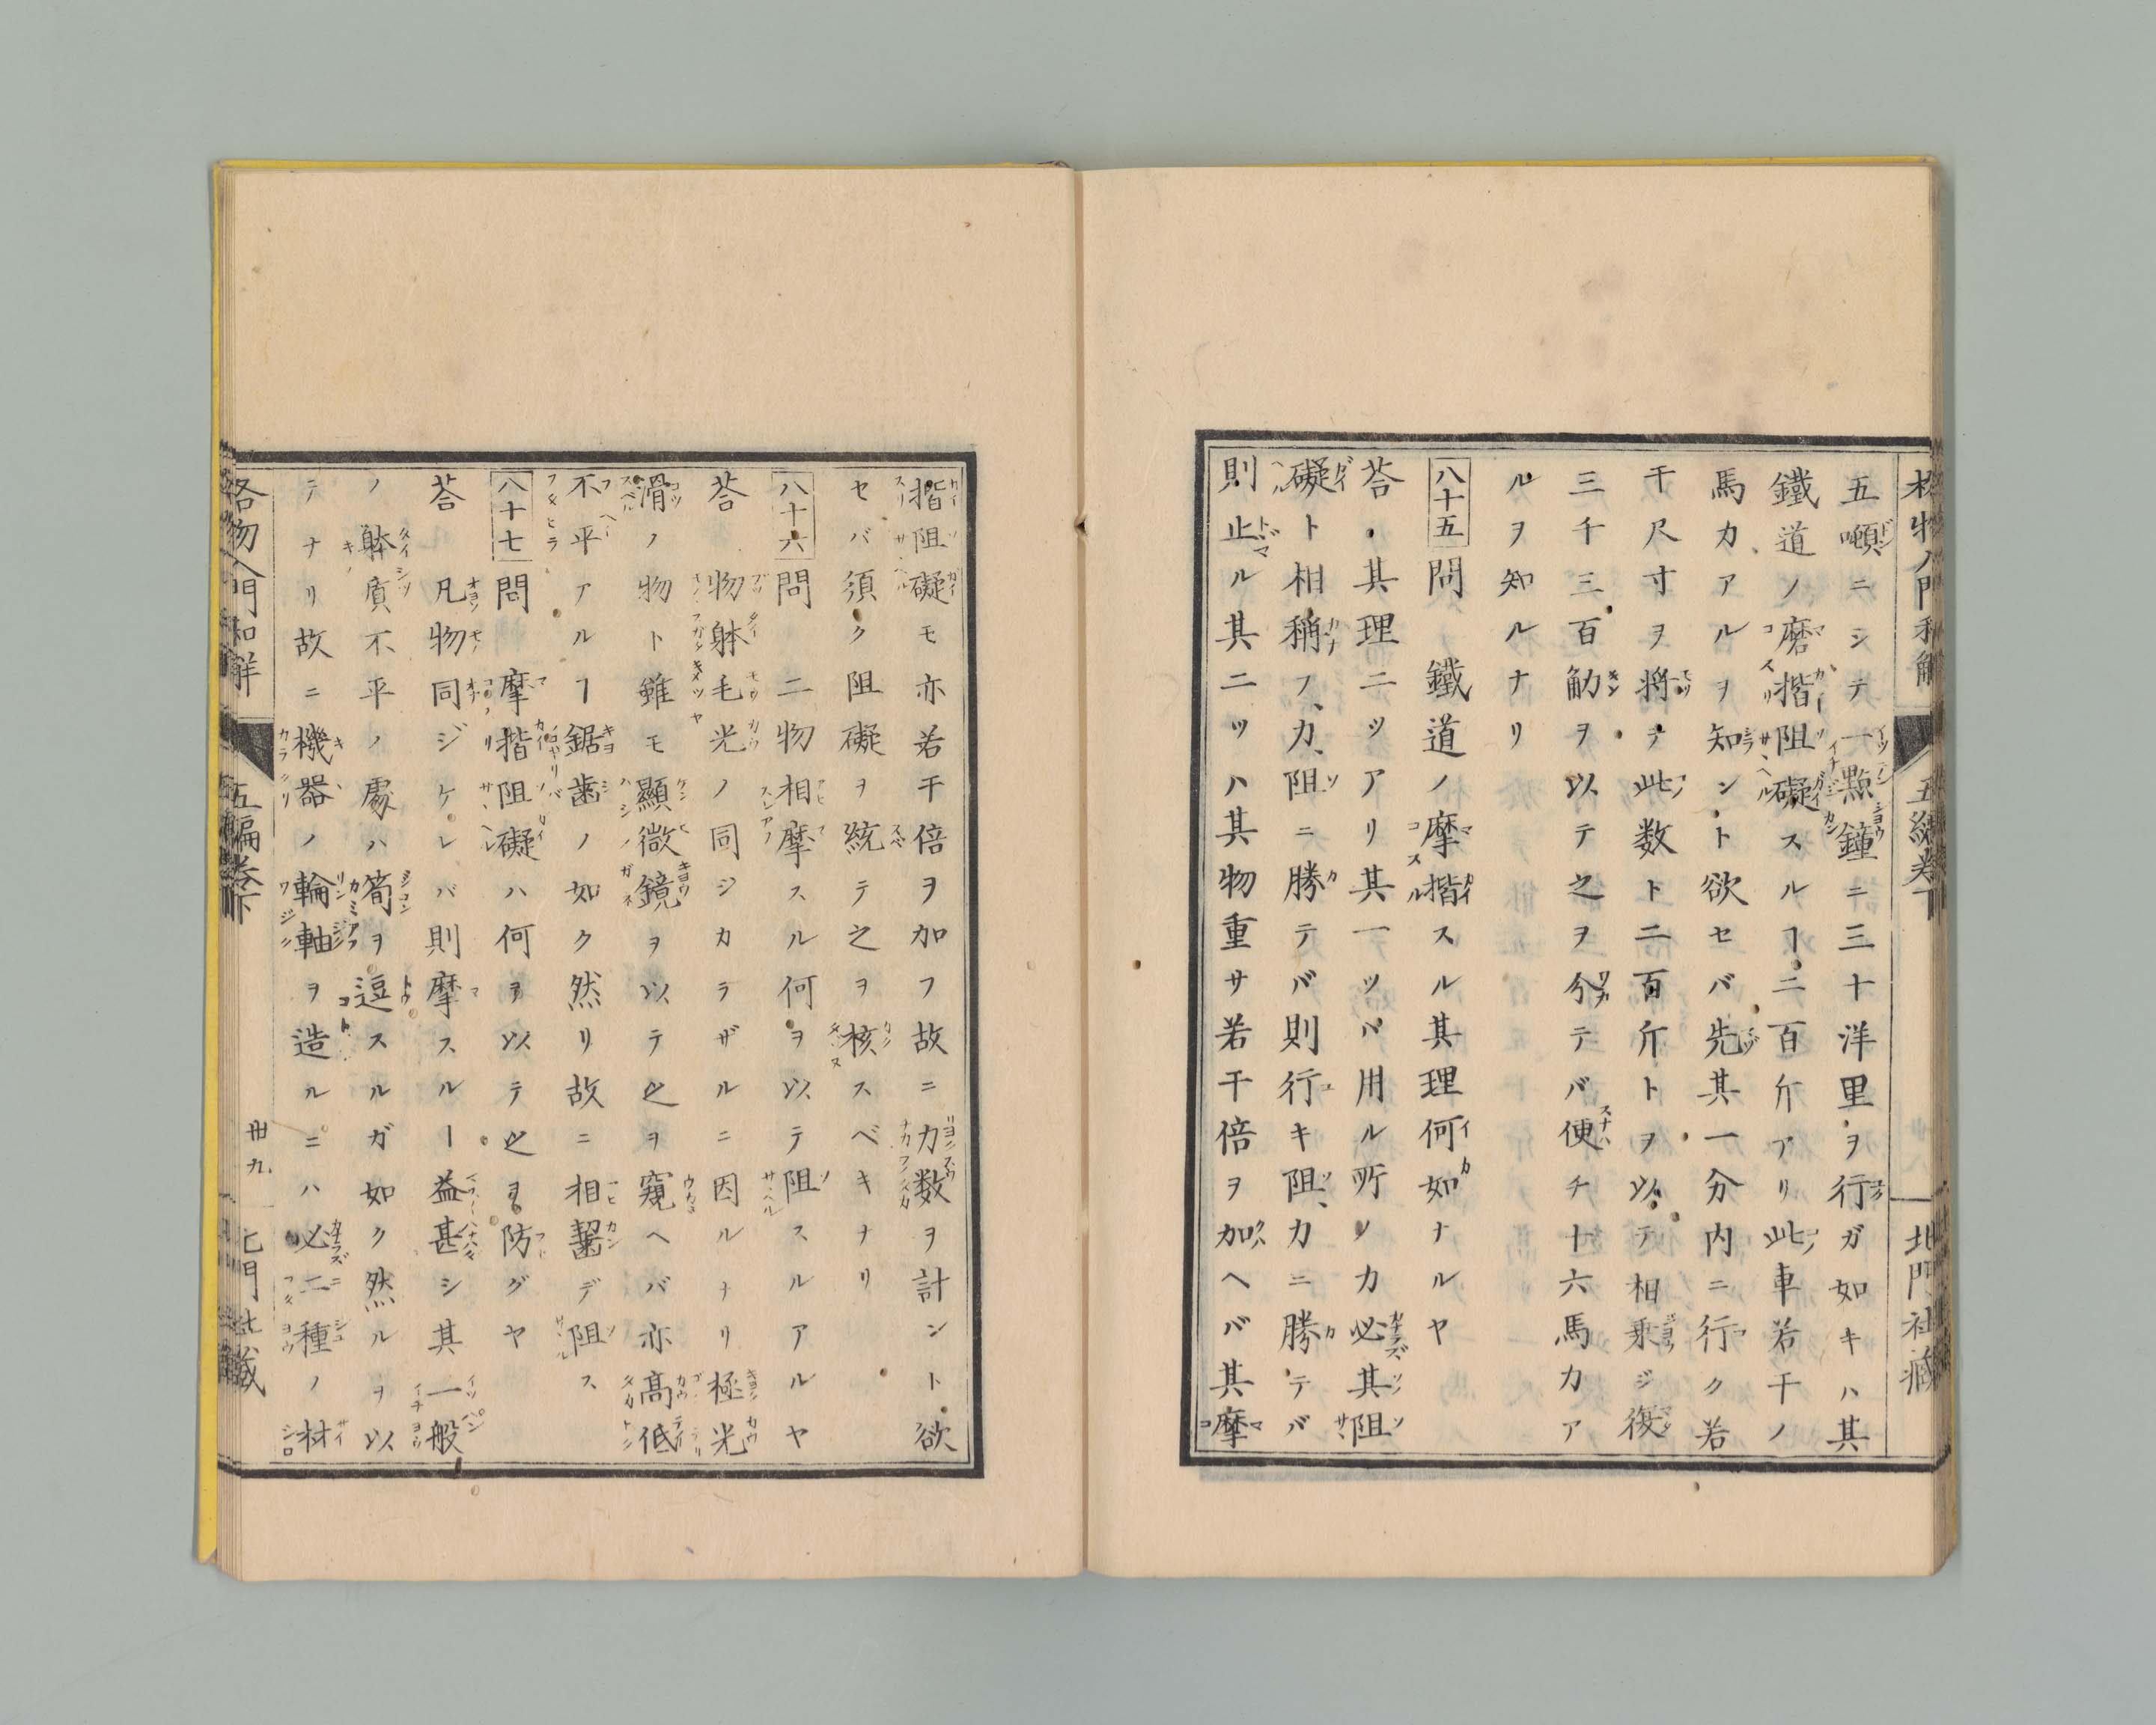 五噸ニシテ一點鐘ニ三十洋里ヲ行ガ如キハ其
鐵道ノ磨揩阻礙スルヿ二百斤アリ此車若干ノ
馬力アルヲ知ント欲セバ先其一分内ニ行ク若
干尺寸ヲ將テ此数ト二百斤トヲ以テ相乘ジ復
三千三百觔ヲ以テ之ヲ分テバ便チ十六馬力ア
ルヲ知ルナリ
八十五問 鐵道ノ摩揩スル其理何如ナルヤ
荅 其理二ツアリ其一ツハ用ル所ノ力必其阻
礙ト相稱フ力阻ニ勝テバ則行キ阻力ニ勝テバ
則止ル其二ツハ其物重サ若干倍ヲ加ヘバ其摩
揩阻礙モ亦若干倍ヲ加フ故ニ力数ヲ計ント欲
セバ須ク阻礙ヲ統テ之ヲ核スベキナリ
八十六問 二物相摩スル何ヲ以テ阻スルアルヤ
荅 物躰毛光ノ同ジカラザルニ因ルナリ極光
滑ノ物ト雖モ顯微鏡ヲ以テ之ヲ窺ヘバ亦高低
不平アルヿ鋸歯ノ如ク然リ故ニ相齧デ阻ス
八十七問 摩揩阻礙ハ何ヲ以テ之ヲ防グヤ
荅 凡物同ジケレバ則摩スルヿ益甚シ其一般
ノ躰質不平ノ處ハ筍ヲ逗スルガ如ク然ルヲ以
テナリ故ニ機器ノ輪軸ヲ造ルニハ必二種ノ材
格物入門和解 五編卷下 卅九 北門社藏